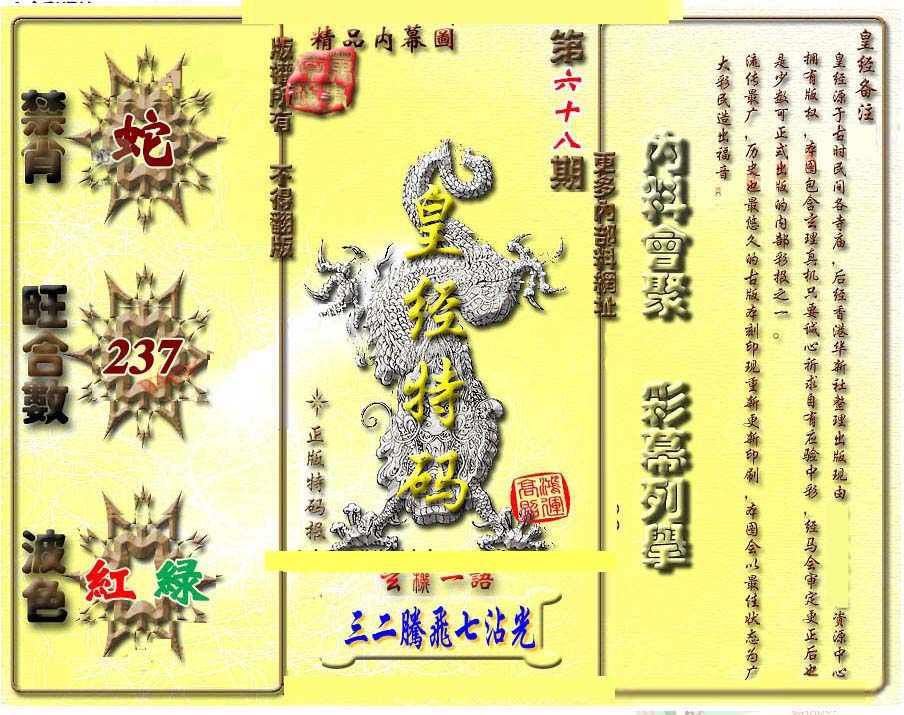 精品内幕圖
版權所有 不得翻版
第六十八期
更多內部料網址
禁肖
蛇
旺合數
237
波色
紅 綠
皇经特码
正版特码报
鴻運高照
玄機一語
三二騰飛七沾光
內料會聚
彩幕列舉
皇经备注
皇经源于古时民间各寺庙,后经香港华新社整理出版现由 资源中心
拥有版权,本图包含玄理真机只要诚心祈求自有应验中彩,经马会审定更正后也
是少数可正式出版的内部彩报之一。
流传最广,历史也最悠久的古版本刻印现重新更新印刷,本图会以最佳状态为广
大彩民造出福音